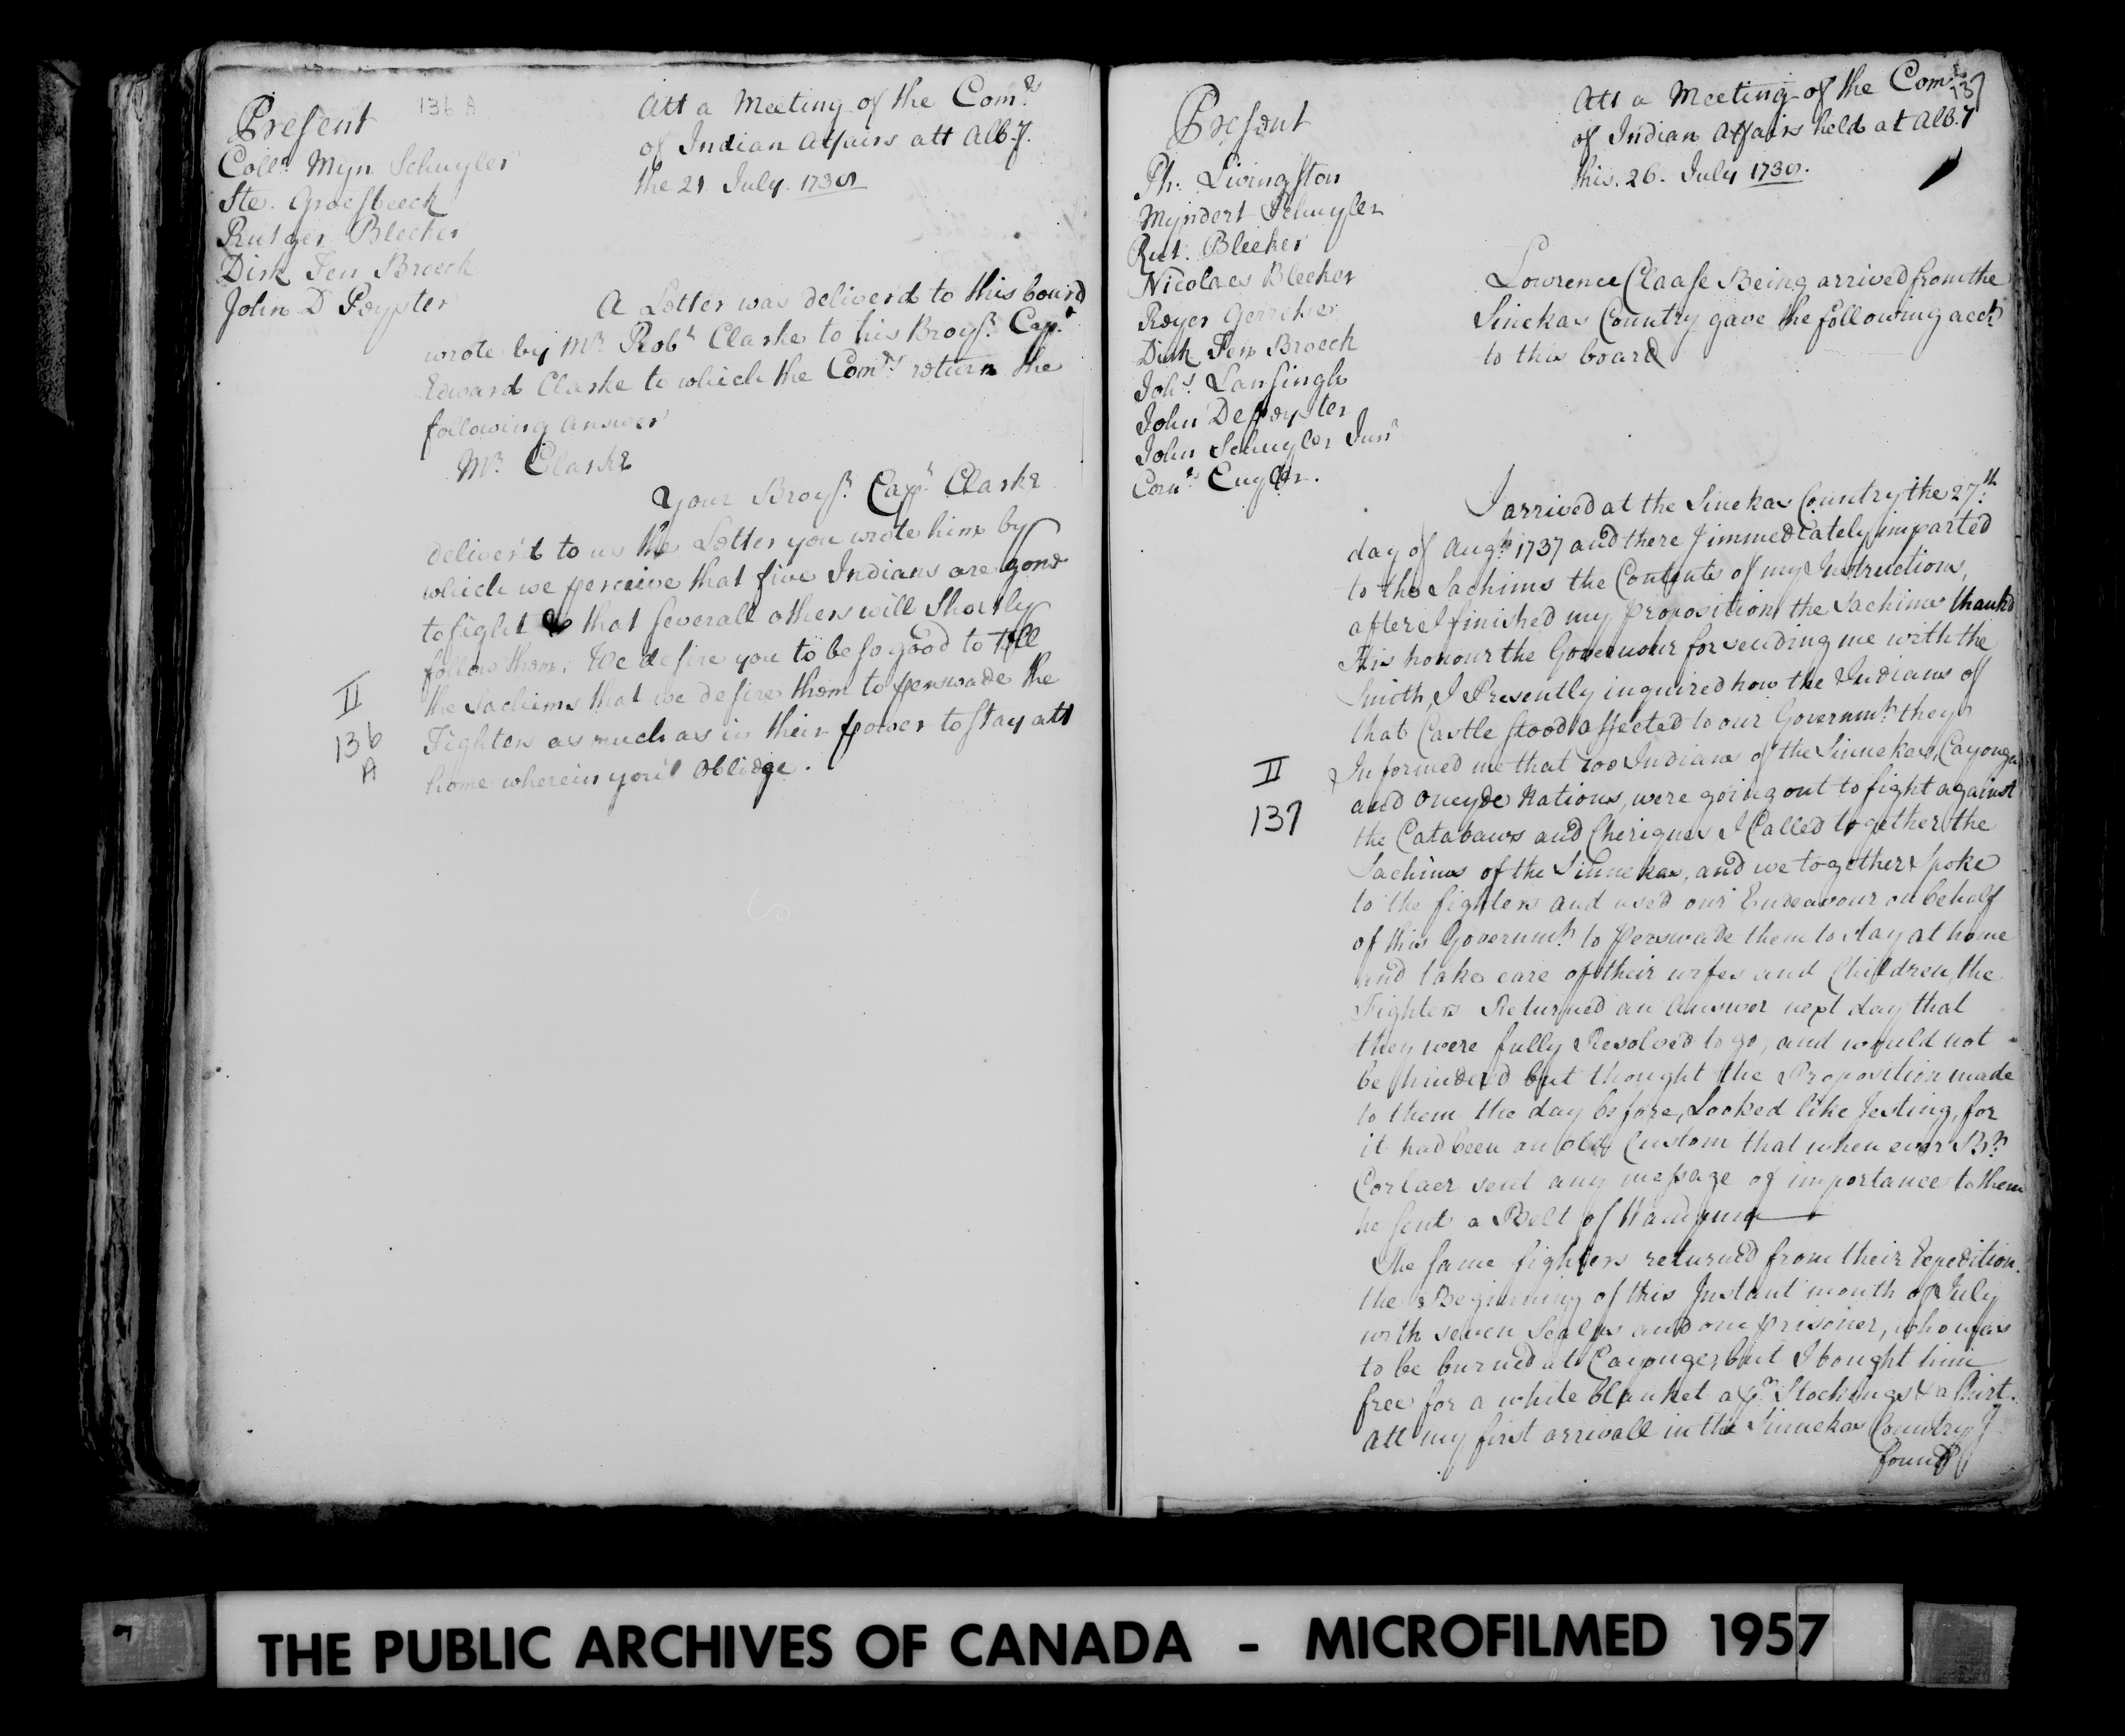 136 A
Present
Coll.º Myn Schuyler
Ste. Groesbeeck
Rutger Bleeker
Dirk Ten Broeck
John D Peyster
Att a Meeting of the Com.rs
of Indian Affairs att Alb.y
the 21 July 1738
A Letter was deliverd to this board
wrote by Mr Rob.t Clarke to his Broy.r Cap.t
Edward Clarke to which the Com.rs return the
following answer
Mr Clarke
Your Broy.r Cap.t Clarke
deliver'd to us the Letter you wrote him by
which we perceive that five Indians are gone
to fight & that severall others will Shortly
follow them. We desire you to be so good to tell
the Sachims that we desire them to perswade the
Fighters as much as in their power to stay att
home wherein you'l Oblidge.
II
136
A
137
Present
Ph. Livingston
Myndert Schuyler
Rut. Bleeker
Nicolaes Bleeker
Reyer Gerritse
Dirk Ten Broeck
Joh.s Lansingh
John Depeyster
John Schuyler Junr
Corn.s Cuyler.
Att a Meeting of the Com.rs
of Indian Affairs held at Alb.y
this 26. July 1738.
Lowrence Claase Being arrived from the
Sinekas Country gave the following acct
to this board
I arrived at the Sinekas Country the 27.th
day of Aug.t 1737 and there I immediately imparted
to the Sachims the Contents of my Instructions,
after I finished my proposition the Sachims thankd
His honour the Governour for sending me with the
Smith, I Presently inquired how the Indians of
that Castle stood affected to our Governm.t they
Informed me that 200 Indians of the Sinnekas, Cayouges
and Oneyde Nations, were going out to fight against
the Catabaws and Cheriques I Called together the
Sachims of the Sinnekas, and we together spoke
to the fighters and used our Endeavour on behalf
of this Governm.t to perswade them to stay at home
and take care of their wifes and Children, the
Fighters Returned an Answer next day that
they were fully Resolved to go, and would not
be hinderd but thought the Proposition made
to them the day before, Looked like Jesting, for
it had been an old Custom that when ever Br.
Corlaer sent any message of importance to them
he sent a Belt of Wampum
The same fighters returned from their Expedition
the Beginning of this Instant month of July
with seven Scalps and one prisoner, who was
to be burned at Cayouges, but I bought him
free for a white blanket a p.r Stockings & a shirt.
Att my first arrivall in the Sinnekas Country I
found
II
137
THE PUBLIC ARCHIVES OF CANADA - MICROFILMED 1957